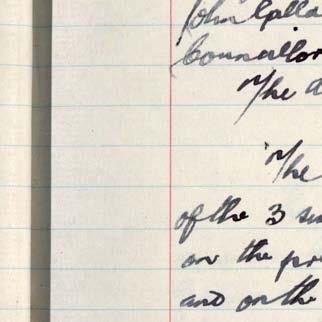 John
Councillor
The
The
of the 3
on the
and on the